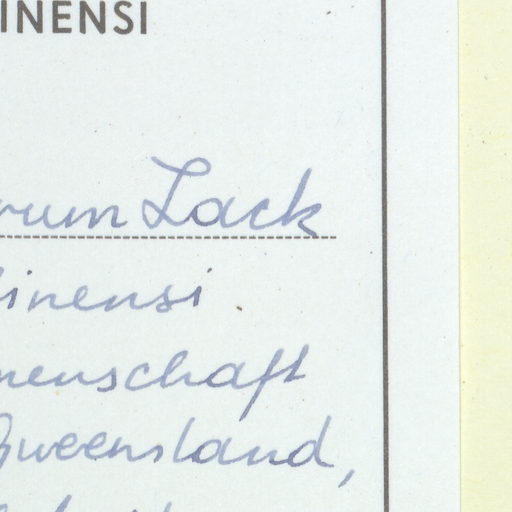 INENSI
rum Lack
inensi
nenschaft
Queensland,